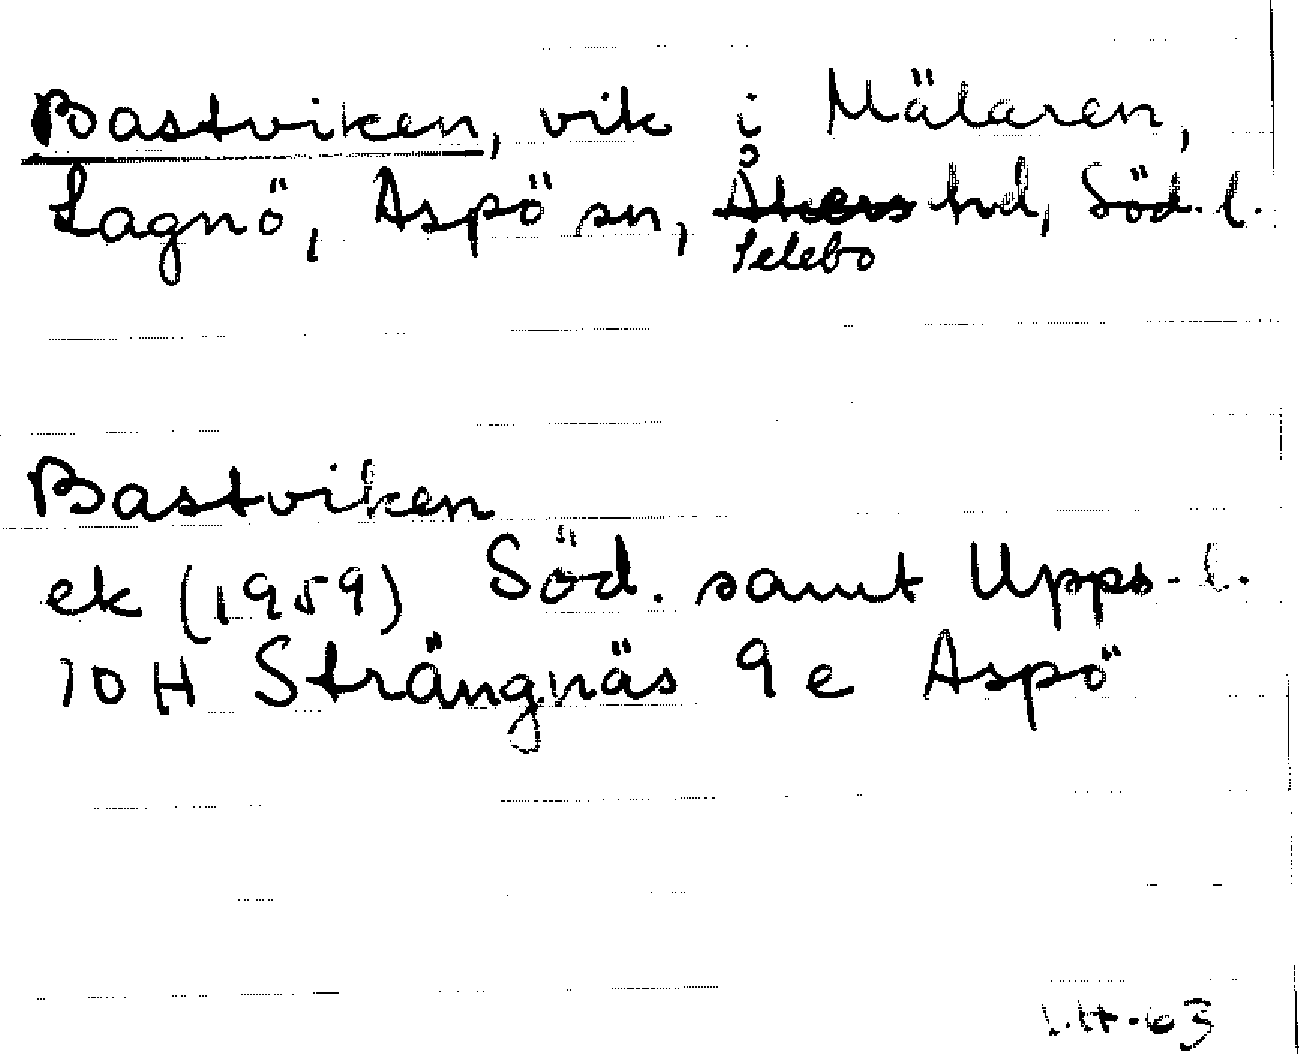 Bastviken, vik i Mälaren,
Lagnö, Aspö sn, Åkers hd, Söd. l.
Selebo
Bastviken
ek (1959) Söd. samt Upps. l.
10 H Strängnäs 9 e Aspö